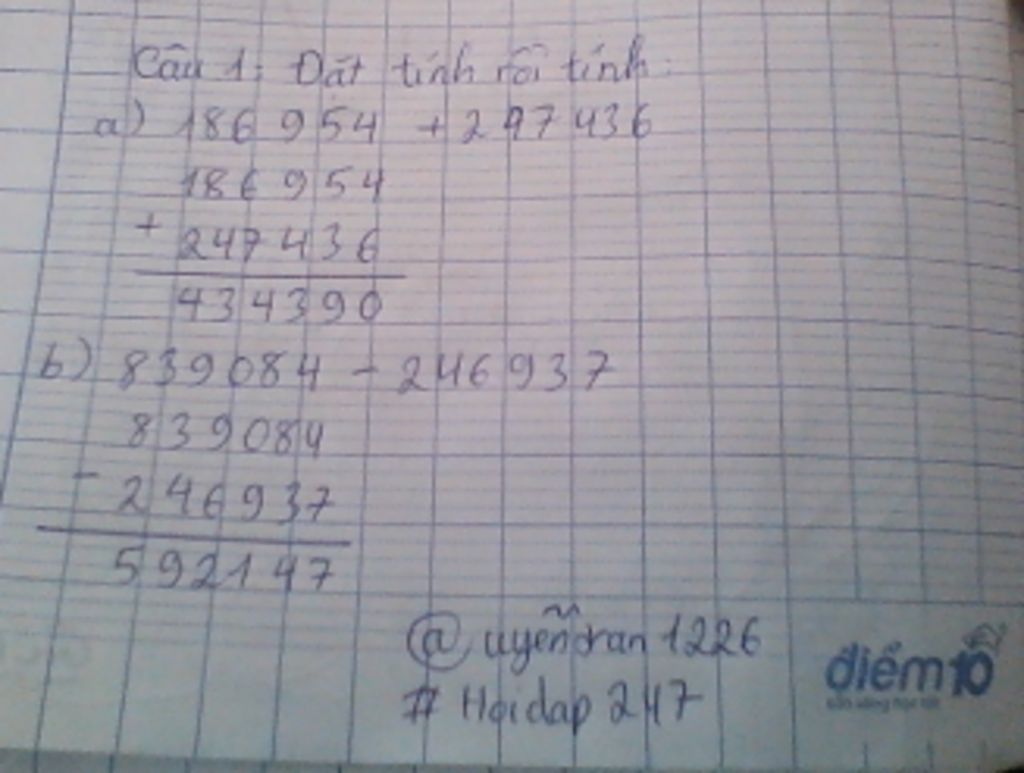 Câu 1: Đặt tính rồi tính:
a) 186 954 + 247 436
186 954
+
247 436
434390
b) 839084 - 246937
839084
-
246937
592147
@uyễntran1226
# Hoidap 247
điểm10